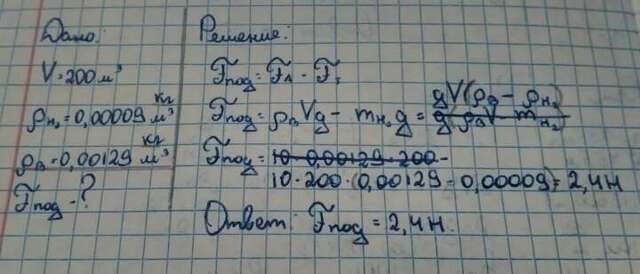 Дано:
V=200 м³
ρн₂=0,00009 кг/м³
ρв=0,00129 кг/м³
Fпод-?
Решение:
Fпод=FA-Fт
Fпод=ρвVg-mн₂g=gV(ρв-ρн₂)
g ρвV mн₂
Fпод=10·0,00129·200-
10·200·(0,00129-0,00009)=2,4Н
Ответ: Fпод=2,4Н.